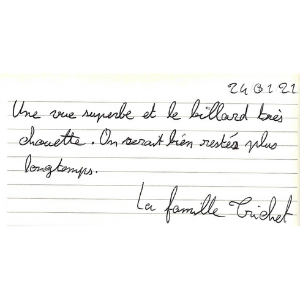 24 01 21
Une vue superbe et le billard très
chouette. On serait bien restés plus
longtemps.
La famille Trichet